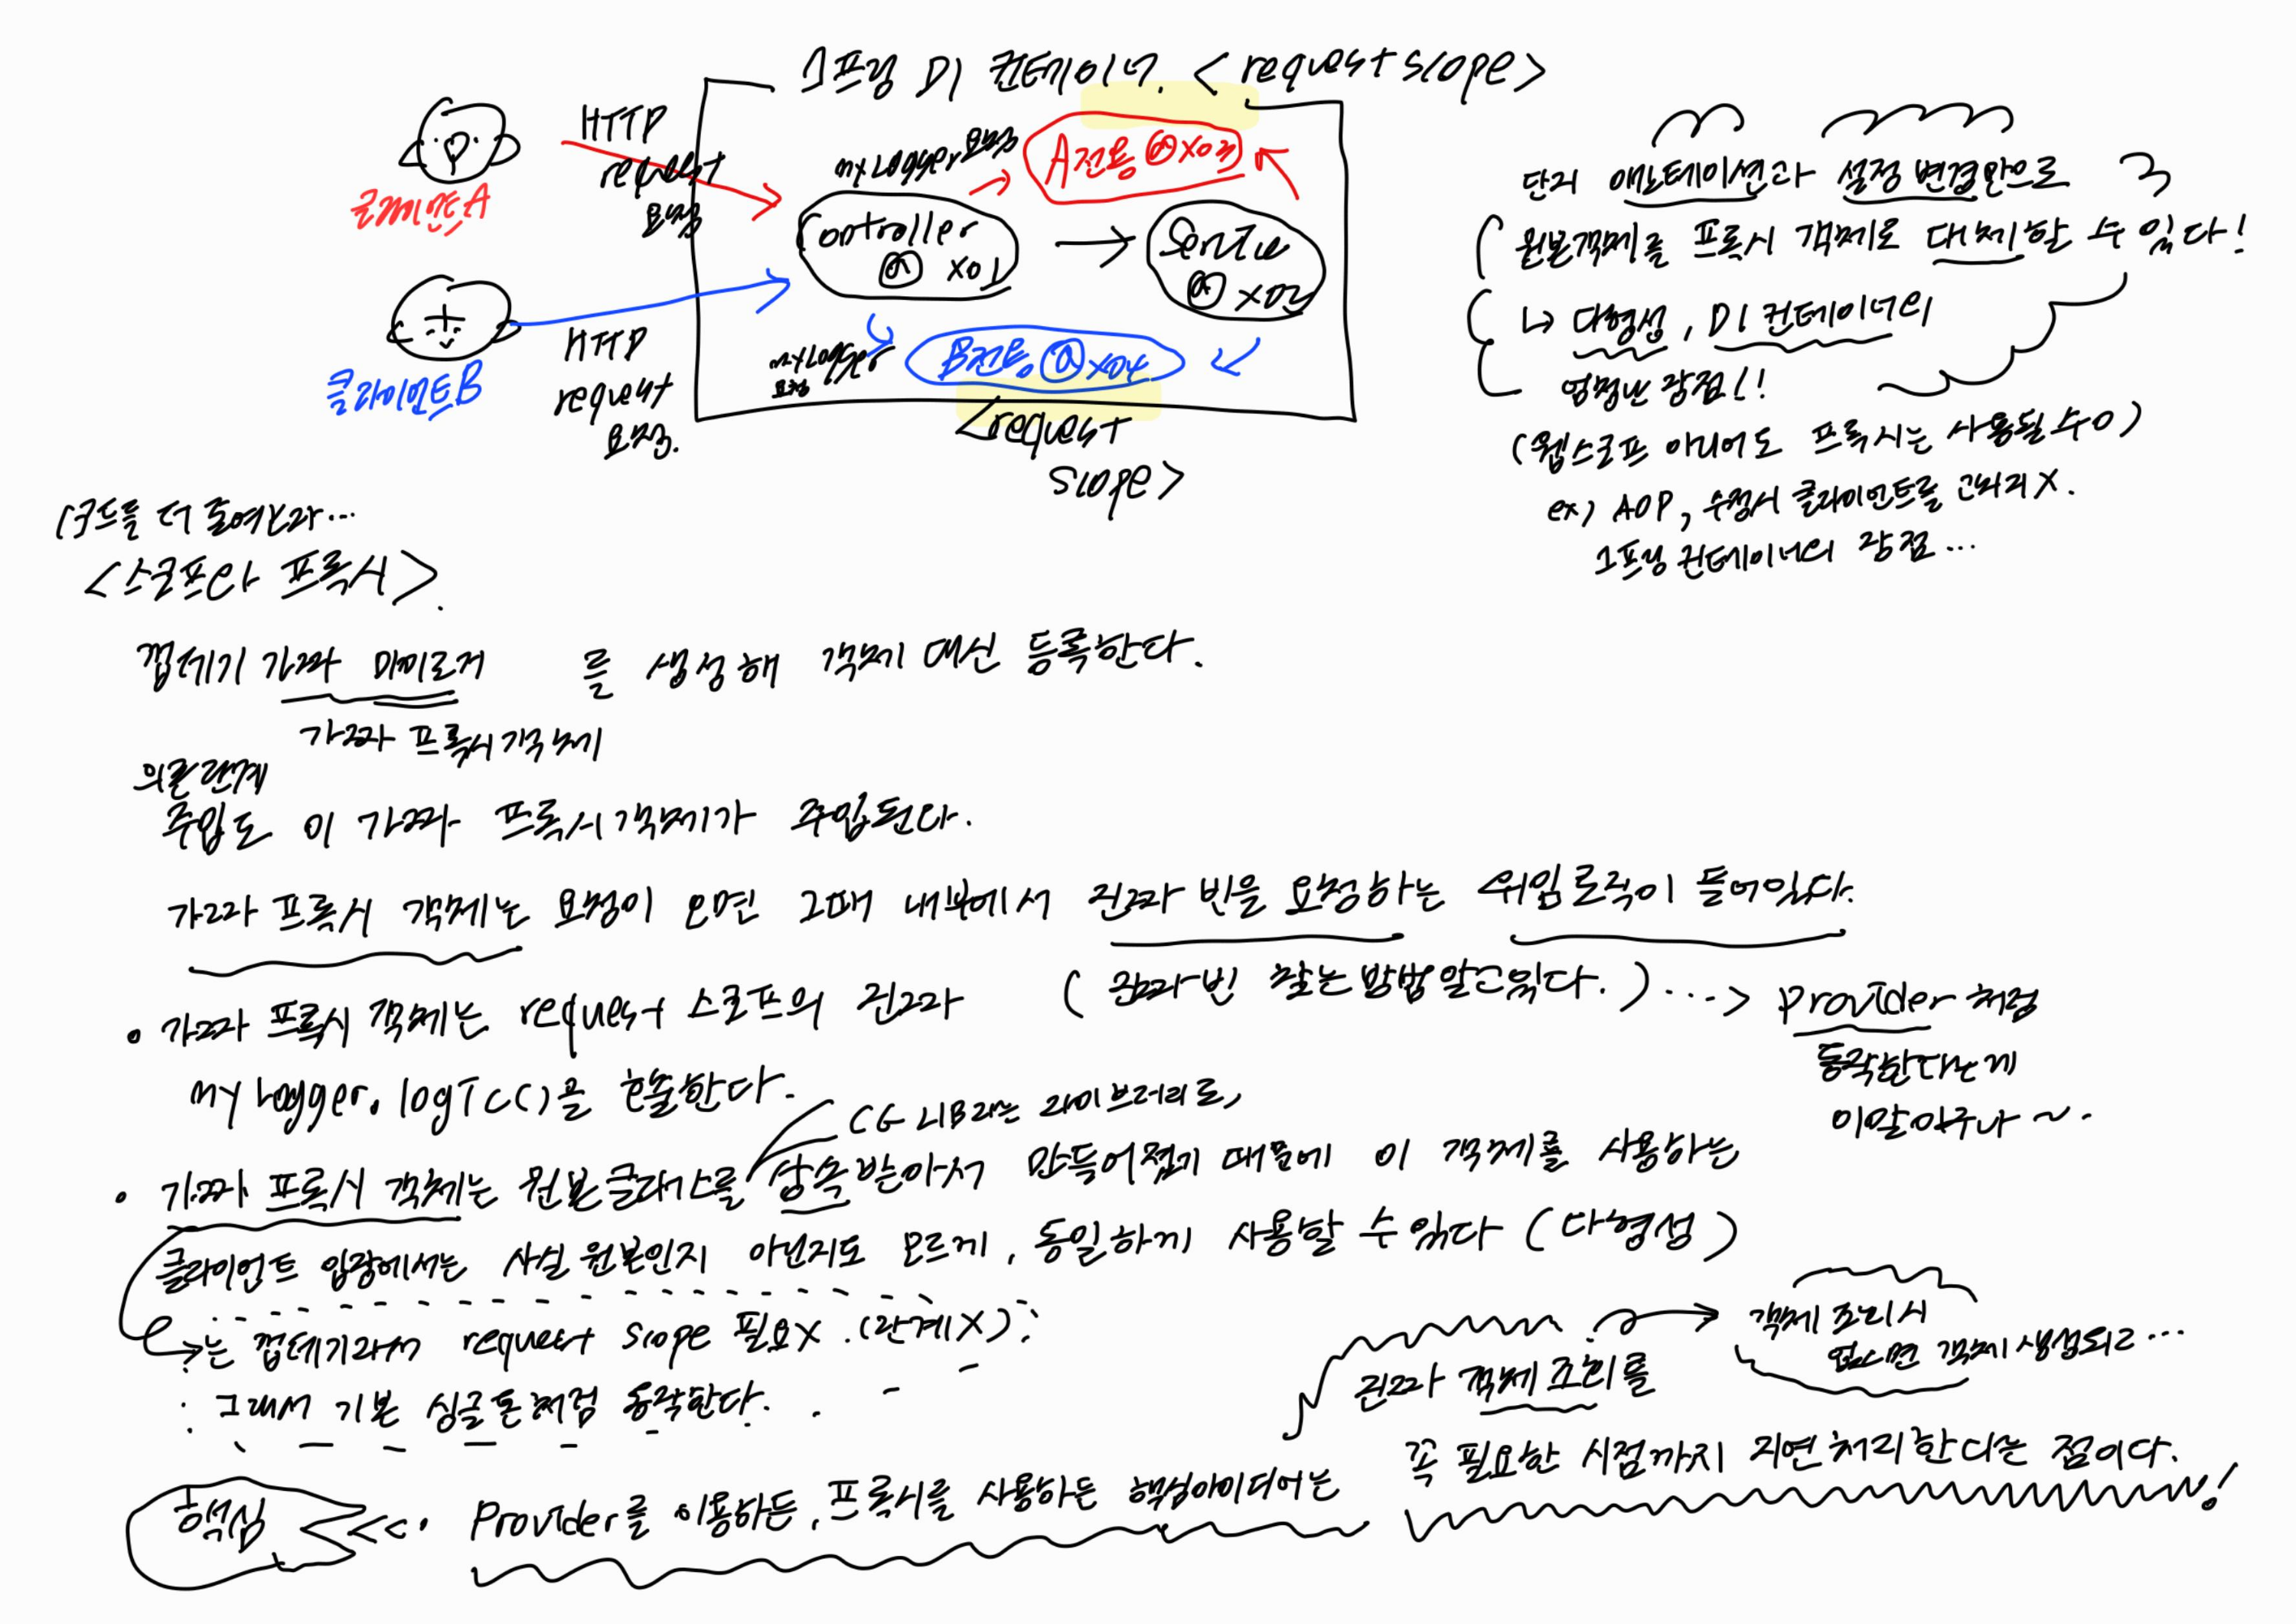 스프링 DI 컨테이너. <request scope>
HTTP
request
요청
클라이언트A
myLogger 요청
A전용 @x03
Controller
@x01
Service
@x02
클라이언트B
HTTP
request
요청.
myLogger
요청
B전용 @x04
<request
scope>
단지 애노테이션과 설정 변경만으로
원본객체를 프록시 객체로 대체할 수 있다!
↳ 다형성, DI 컨테이너의
엄청난 장점!!
(웹스코프 아니어도 프록시는 사용될 수 O)
ex) AOP, 수정시 클라이언트를 고치지 X.
스프링 컨테이너의 장점...
코드를 더 줄여보자...
<스코프와 프록시>.
껍데기 가짜 마이로거 를 생성해 객체 대신 등록한다.
가짜 프록시 객체
의존관계
주입도 이 가짜 프록시 객체가 주입된다.
가짜 프록시 객체는 요청이 오면 그때 내부에서 진짜 빈을 요청하는 위임 로직이 들어있다.
(진짜 빈 찾는 방법 알고있다.) ...> provider 처럼
동작한다는게
이말이구나~.
• 가짜 프록시 객체는 request 스코프의 진짜
myLogger.logic()을 호출한다.
CGLIB라는 라이브러리로,
• 가짜 프록시 객체는 원본클래스를 상속 받아서 만들어졌기 때문에 이 객체를 사용하는
클라이언트 입장에서는 사실 원본인지 아닌지도 모르게, 동일하게 사용할 수 있다 (다형성)
→는 껍데기라서 request scope 필요X. (관계X)
그래서 기본 싱글톤처럼 동작한다.
객체 조회시
없으면 객체 생성되고...
진짜 객체 조회를
꼭 필요한 시점까지 지연처리한다는 점이다.
핵심 <<• Provider를 이용하든, 프록시를 사용하든 핵심아이디어는